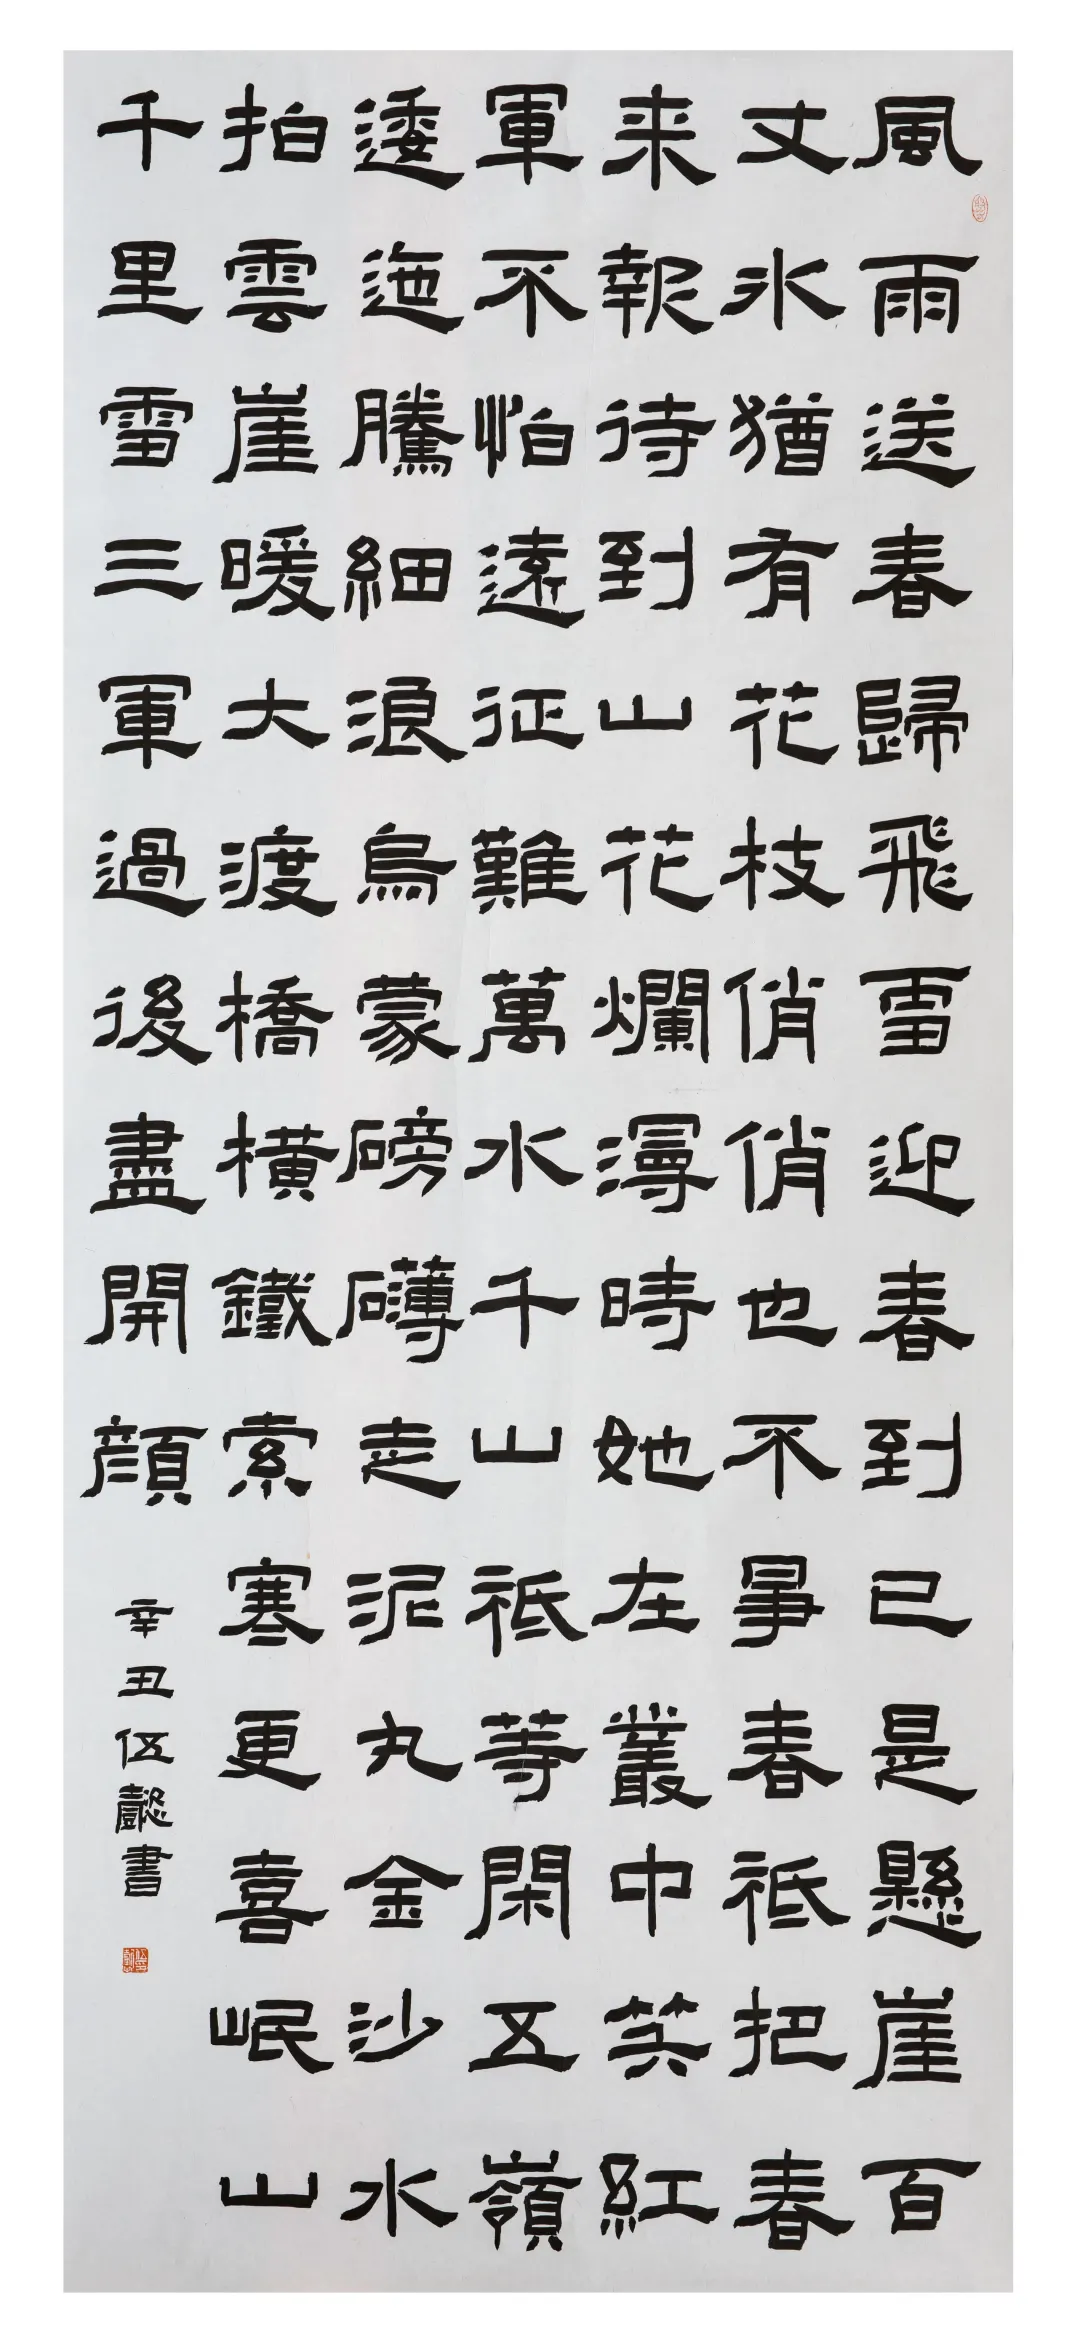 風雨送春歸飛雪迎春到已是懸崖百
丈氷猶有花枝俏俏也不爭春祗把春
来報待到山花爛漫時她在叢中笑紅
軍不怕遠征難萬水千山祗等閑五嶺
逶迤騰細浪烏蒙磅礴走泥丸金沙水
拍雲崖暖大渡橋橫鐵索寒更喜岷山
千里雪三軍過後盡開顏
辛丑伍懿書